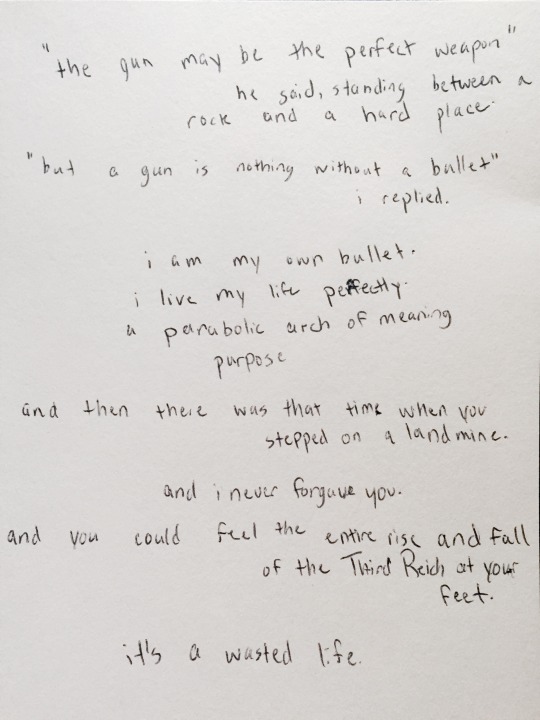 "the gun may be the perfect weapon"
he said, standing between a
rock and a hard place.
"but a gun is nothing without a bullet"
i replied.
i am my own bullet.
i live my life perfectly.
a parabolic arch of meaning
purpose
and then there was that time when you
stepped on a landmine.
and i never forgave you.
and you could feel the entire rise and fall
of the Third Reich at your
feet.
it's a wasted life.